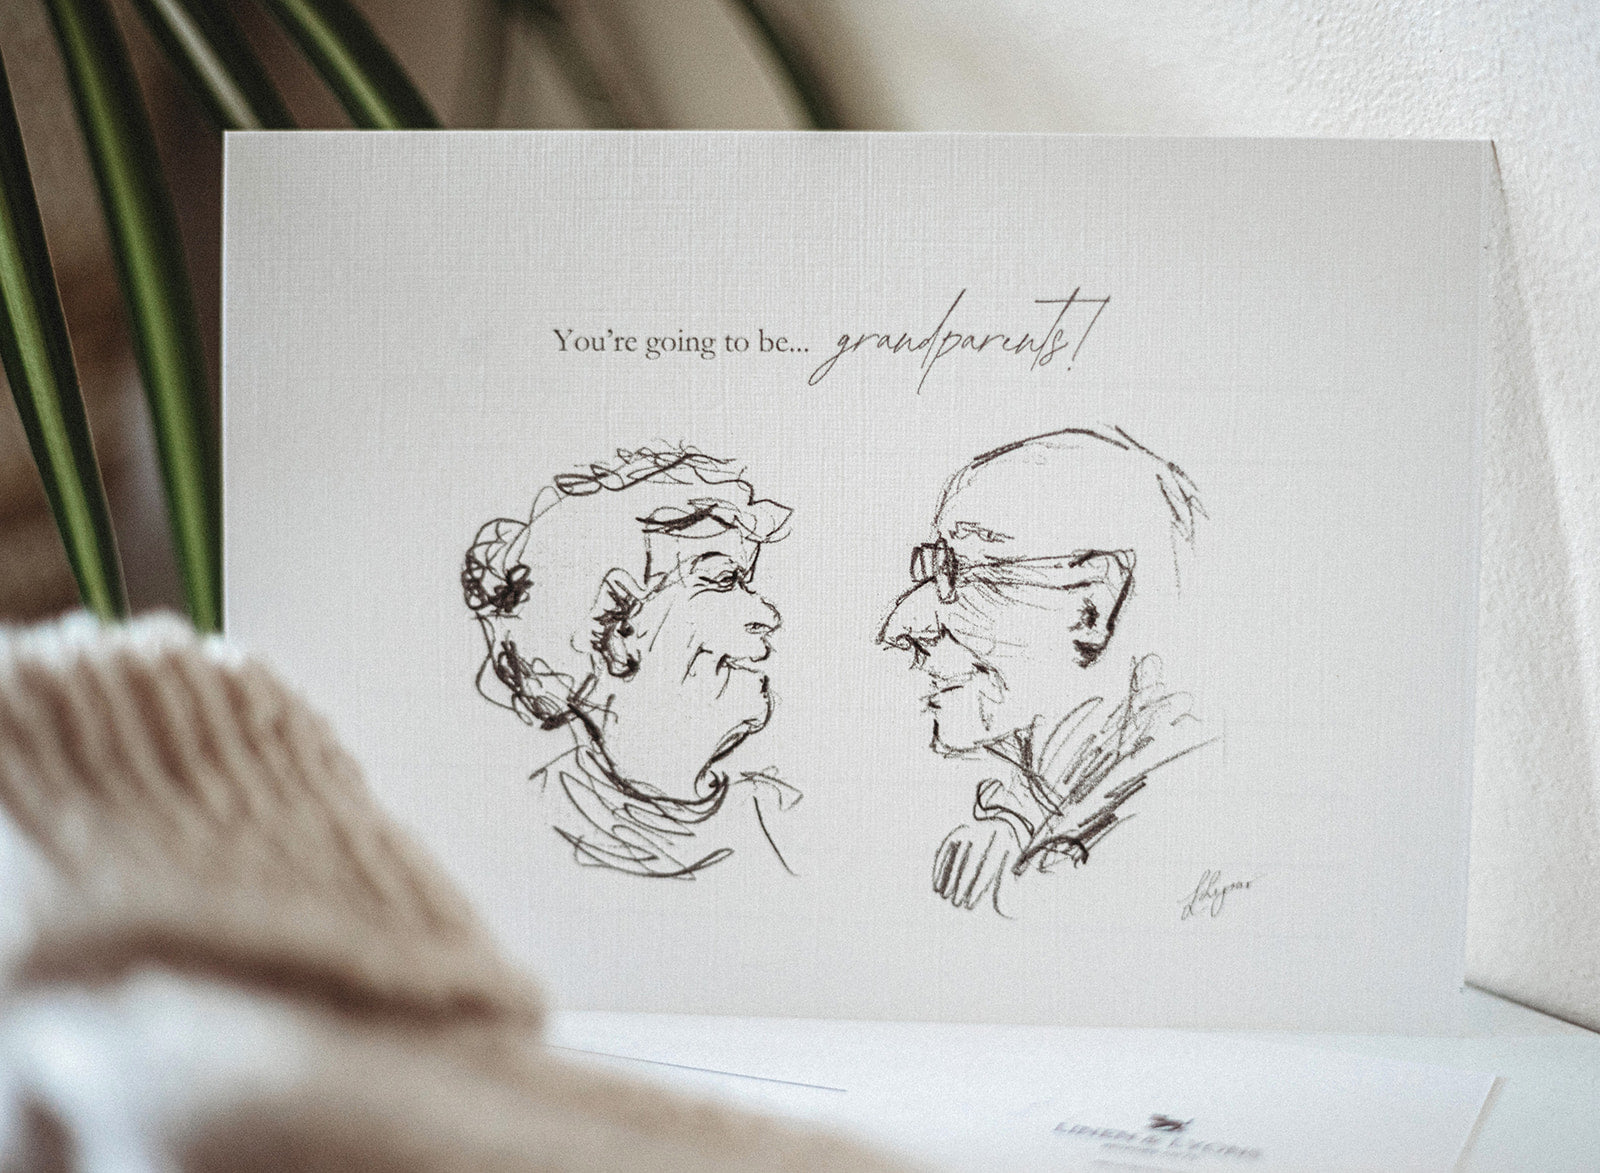 You're going to be... grandparents!
LINEN & LYONS